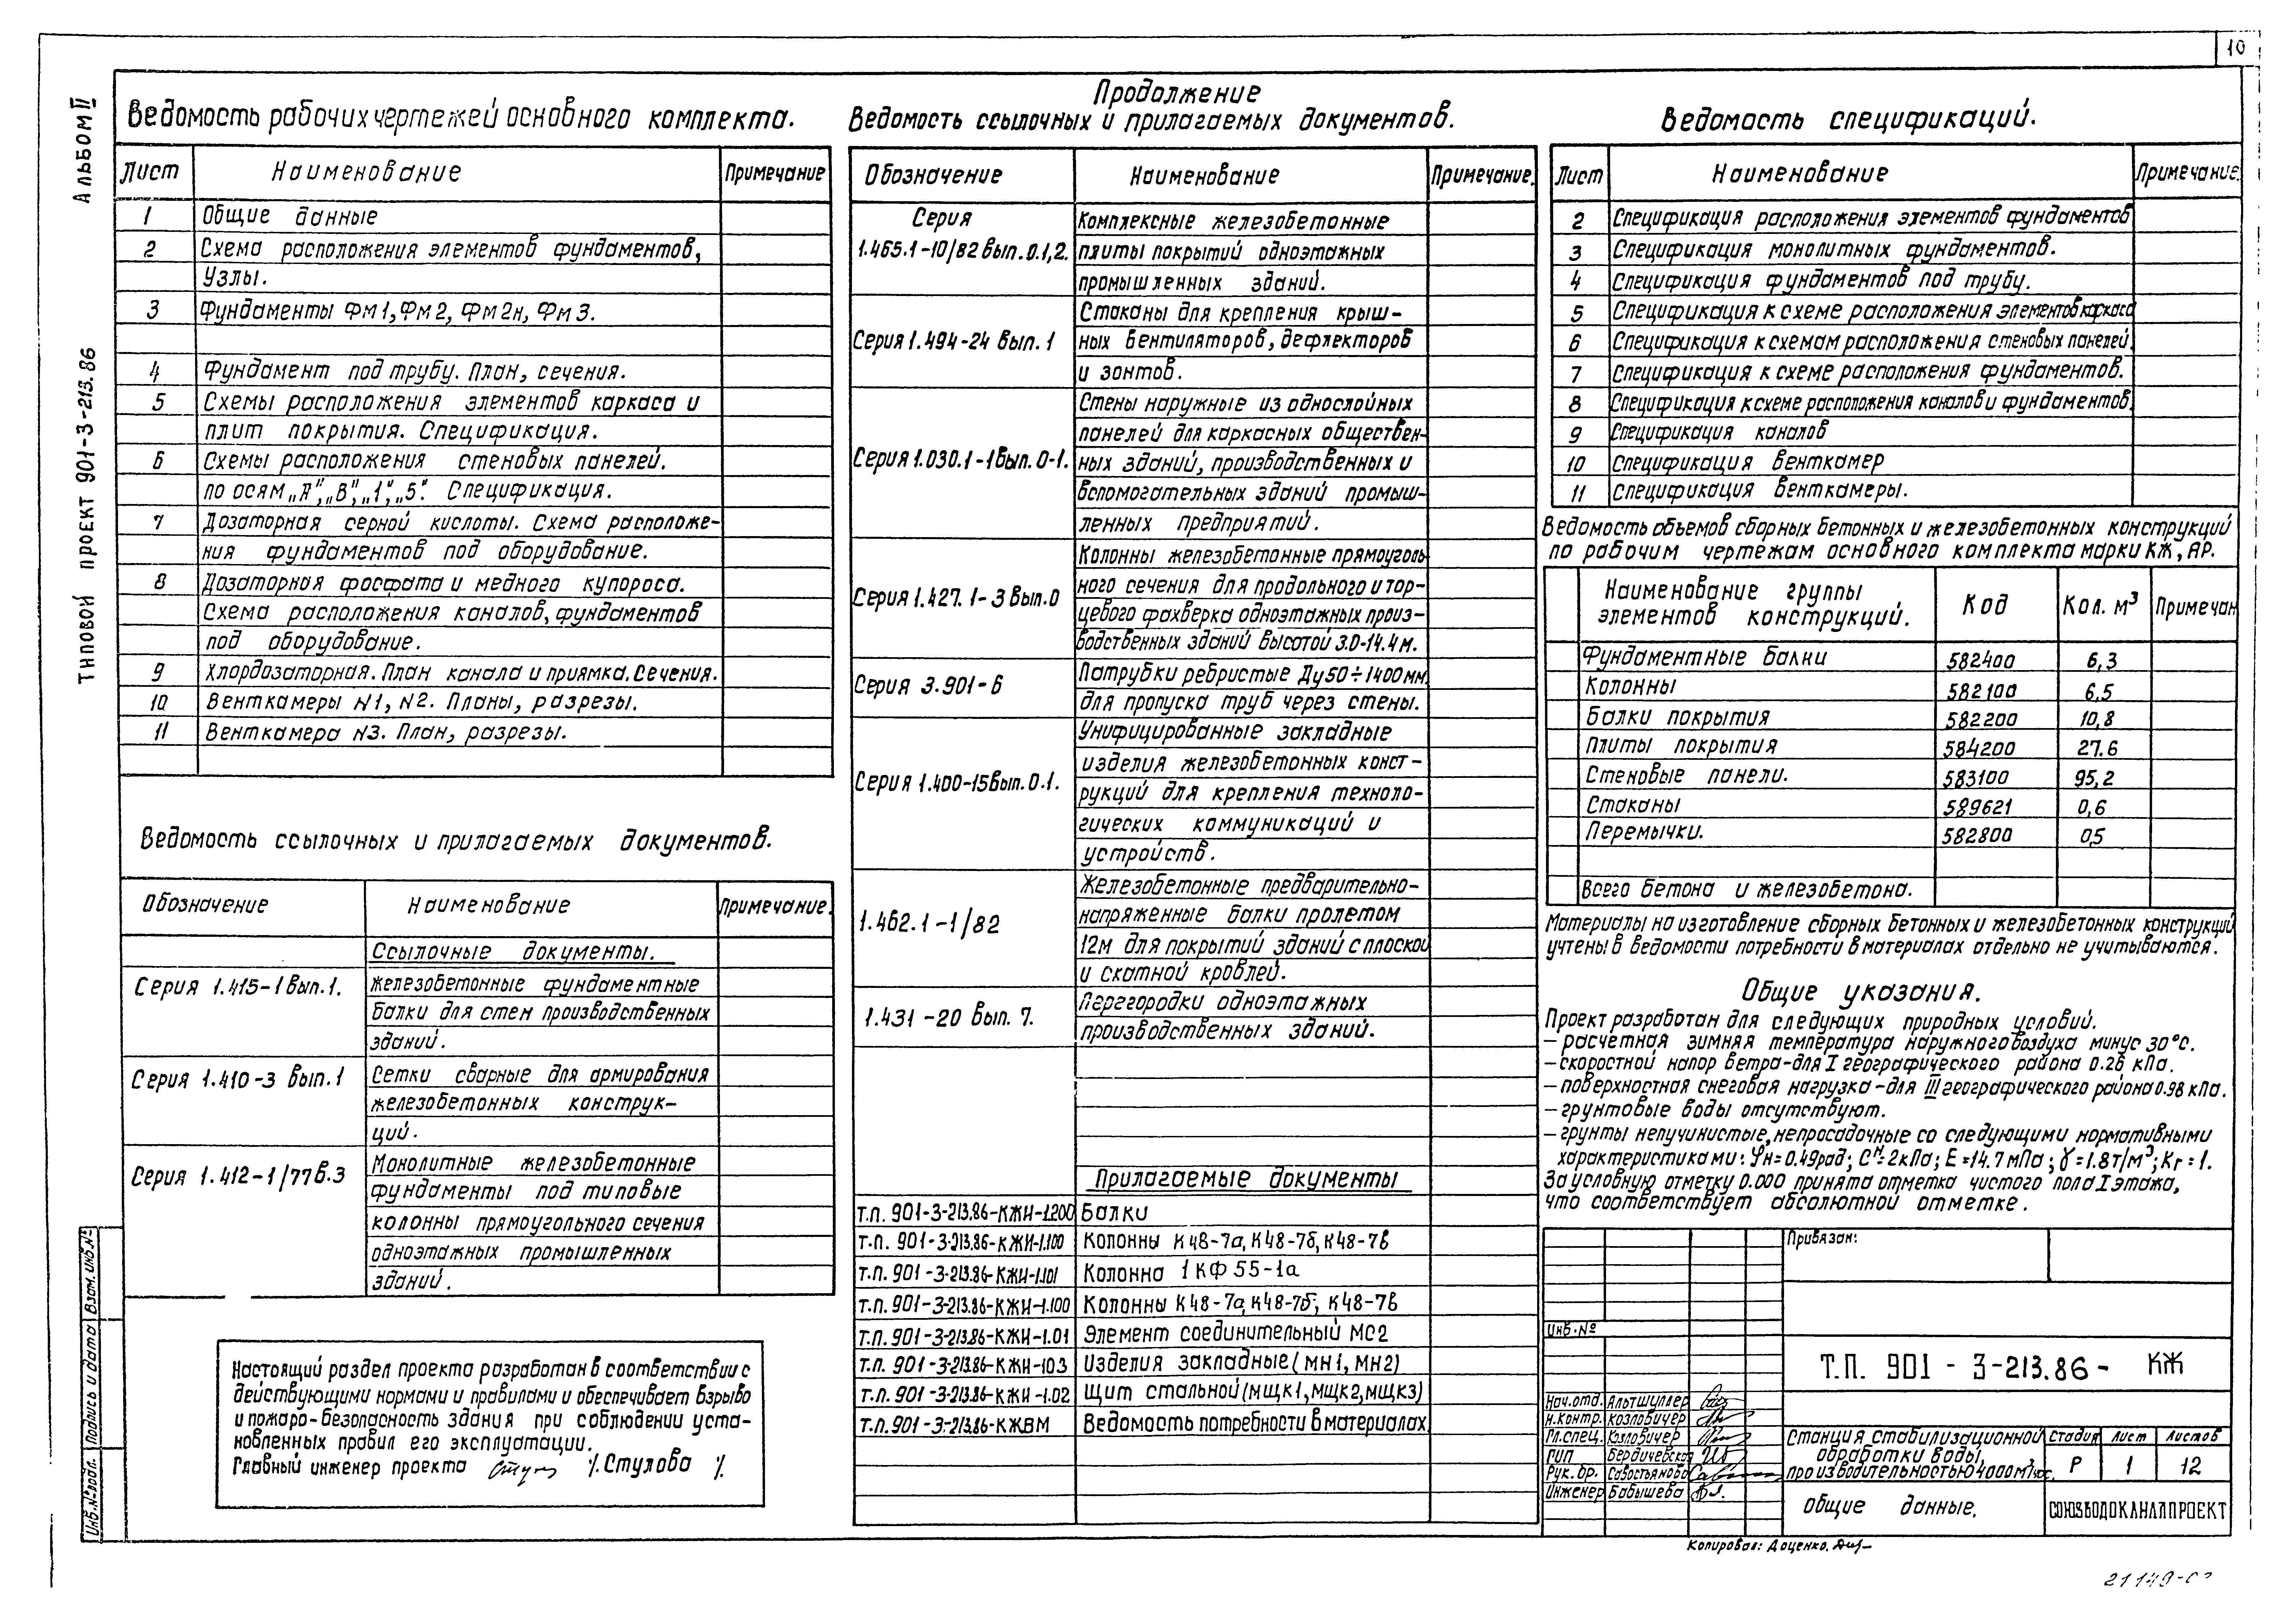 10
Альбом II
Типовой проект 901-3-213.86
Ведомость рабочих чертежей основного комплекта.
Лист Наименование Примечание
1 Общие данные
2 Схема расположения элементов фундаментов,
Узлы.
3 Фундаменты Фм1, Фм2, Фм2н, Фм3.
4 Фундамент под трубу. План, сечения.
5 Схемы расположения элементов каркаса и
плит покрытия. Спецификация.
6 Схемы расположения стеновых панелей.
по осям „А", „В", „1", „5". Спецификация.
7 Дозаторная серной кислоты. Схема расположе-
ния фундаментов под оборудование.
8 Дозаторная фосфата и медного купороса.
Схема расположения каналов, фундаментов
под оборудование.
9 Хлордозаторная. План канала и приямка. Сечения.
10 Венткамеры N1, N2. Планы, разрезы.
11 Венткамера N3. План, разрезы.
Ведомость ссылочных и прилагаемых документов.
Обозначение Наименование Примечание.
Ссылочные документы.
Серия 1.415-1 вып.1. железобетонные фундаментные
балки для стен производственных
зданий.
Серия 1.410-3 вып.1 Сетки сварные для армирования
железобетонных конструк-
ций.
Серия 1.412-1/77 в.3 Монолитные железобетонные
фундаменты под типовые
колонны прямоугольного сечения
одноэтажных промышленных
зданий.
Настоящий раздел проекта разработан в соответствии с
действующими нормами и правилами и обеспечивает взрыво
и пожаро-безопасность здания при соблюдении уста-
новленных правил его эксплуатации.
Главный инженер проекта /Стулова/
Продолжение
Ведомость ссылочных и прилагаемых документов.
Обозначение Наименование Примечание.
Серия Комплексные железобетонные
1.465.1-10/82 вып.0.1,2. плиты покрытий одноэтажных
промышленных зданий.
Стаканы для крепления крыш-
Серия 1.494-24 вып. 1 ных вентиляторов, дефлекторов
и зонтов.
Стены наружные из однослойных
панелей для каркасных обществен-
Серия 1.030.1-1 вып. 0-1. ных зданий, производственных и
вспомогательных зданий промыш-
ленных предприятий.
Колонны железобетонные прямоуголь
ного сечения для продольного и тор-
Серия 1.427.1-3 вып.0 цевого фахверка одноэтажных произ-
водственных зданий высотой 3.0-14.4 м.
Серия 3.901-6 Патрубки ребристые Ду50÷1400мм.
для пропуска труб через стены.
Унифицированные закладные
изделия железобетонных конст-
Серия 1.400-15 вып.0.1. рукций для крепления техноло-
гических коммуникаций и
устройств.
Железобетонные предварительно-
1.462.1-1/82 напряженные балки пролетом
12м для покрытий зданий с плоской
и скатной кровлей.
1.431-20 вып. 7. Перегородки одноэтажных
производственных зданий.
Прилагаемые документы
т.п. 901-3-213.86-КЖИ-1.200 Балки
т.п. 901-3-213.86-КЖИ-1.100 Колонны К48-7а, К48-7б, К48-7в
т.п. 901-3-213.86-КЖИ-1.101 Колонна 1КФ55-1а
т.п. 901-3-213.86-КЖИ-1.100 Колонны К48-7а, К48-7б, К48-7в
т.п. 901-3-213.86-КЖИ-1.01 Элемент соединительный МС2
т.п. 901-3-213.86-КЖИ-1.03 Изделия закладные (МН1, МН2)
т.п. 901-3-213.86-КЖИ-1.02 Щит стальной (мщк1, мщк2, мщк3)
т.п. 901-3-213.86-КЖВМ Ведомость потребности в материалах
Ведомость спецификаций.
Лист Наименование Примечание.
2 Спецификация расположения элементов фундаментов
3 Спецификация монолитных фундаментов.
4 Спецификация фундаментов под трубу.
5 Спецификация к схеме расположения элементов каркаса
6 Спецификация к схемам расположения стеновых панелей.
7 Спецификация к схеме расположения фундаментов.
8 Спецификация к схеме расположения каналов и фундаментов.
9 Спецификация каналов
10 Спецификация венткамер
11 Спецификация венткамеры.
Ведомость объемов сборных бетонных и железобетонных конструкций
по рабочим чертежам основного комплекта марки КЖ, АР.
Наименование группы
элементов конструкций. Код Кол. м³ Примечан
Фундаментные балки 582400 6,3
Колонны 582100 6,5
Балки покрытия 582200 10,8
Плиты покрытия 584200 27.6
Стеновые панели. 583100 95,2
Стаканы 589621 0,6
Перемычки. 582800 0,5
Всего бетона и железобетона.
Материалы на изготовление сборных бетонных и железобетонных конструкций
учтены в ведомости потребности в материалах отдельно не учитываются.
Общие указания.
Проект разработан для следующих природных условий.
- расчетная зимняя температура наружного воздуха минус 30°С.
- скоростной напор ветра-для I географического района 0.26 кПа.
- поверхностная снеговая нагрузка-для III географического района 0.98 кПа.
- грунтовые воды отсутствуют.
- грунты непучинистые, непросадочные со следующими нормативными
характеристиками: φн=0.49рад; Сн=2кПа; Е=14.7мПа; γ=1.8т/м³; Кг=1.
За условную отметку 0.000 принята отметка чистого пола I этажа,
что соответствует абсолютной отметке.
Привязан:
Инв.№
Т.П. 901-3-213.86- КЖ
Нач.отд. Альтшуллер
Н.контр. Козловичер
Гл.спец. Козловичер
ГИП Бердичевская
Рук.бр. Савостьянова
Инженер Бабышева
Станция стабилизационной
обработки воды,
производительностью 4000 м³/час.
Стадия Лист Листов
Р 1 12
Общие данные.
СОЮЗВОДОКАНАЛПРОЕКТ
Копировал: Доценко.
Инв.№подл. Подпись и дата Взам.инв.№